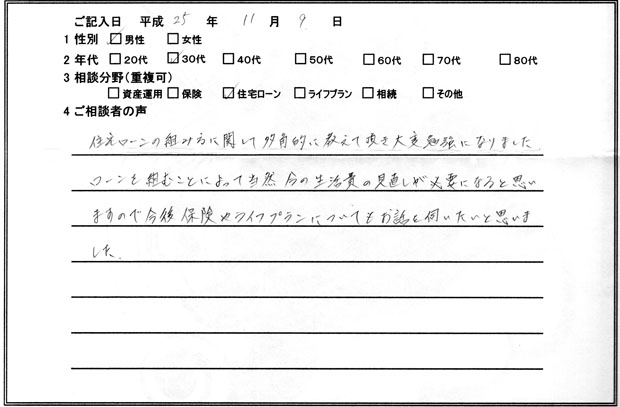 ご記入日 平成 25 年 11 月 9 日
1 性別 ☑男性 □女性
2 年代 □20代 ☑30代 □40代 □50代 □60代 □70代 □80代
3 相談分野(重複可)
□資産運用 □保険 ☑住宅ローン □ライフプラン □相続 □その他
4 ご相談者の声
住宅ローンの組み方に関して多角的に教えて頂き大変勉強になりました
ローンを組むことによって当然今の生活費の見直しが必要になると思い
ますので今後保険やライフプランについてもお話を伺いたいと思いま
した。